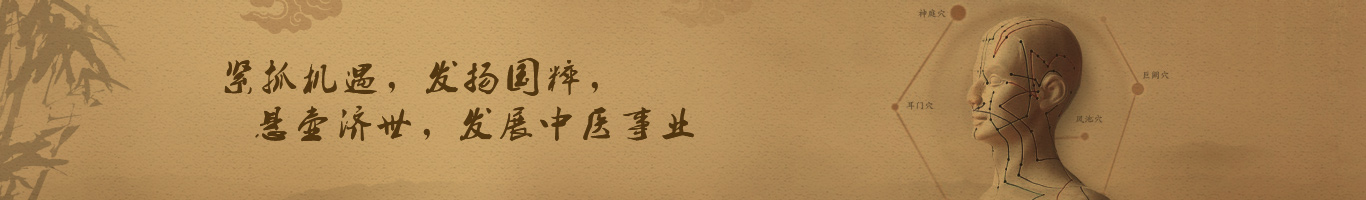 紧抓机遇，发扬国粹，
悬壶济世，发展中医事业
神庭穴
巨阙穴
耳门穴
风池穴